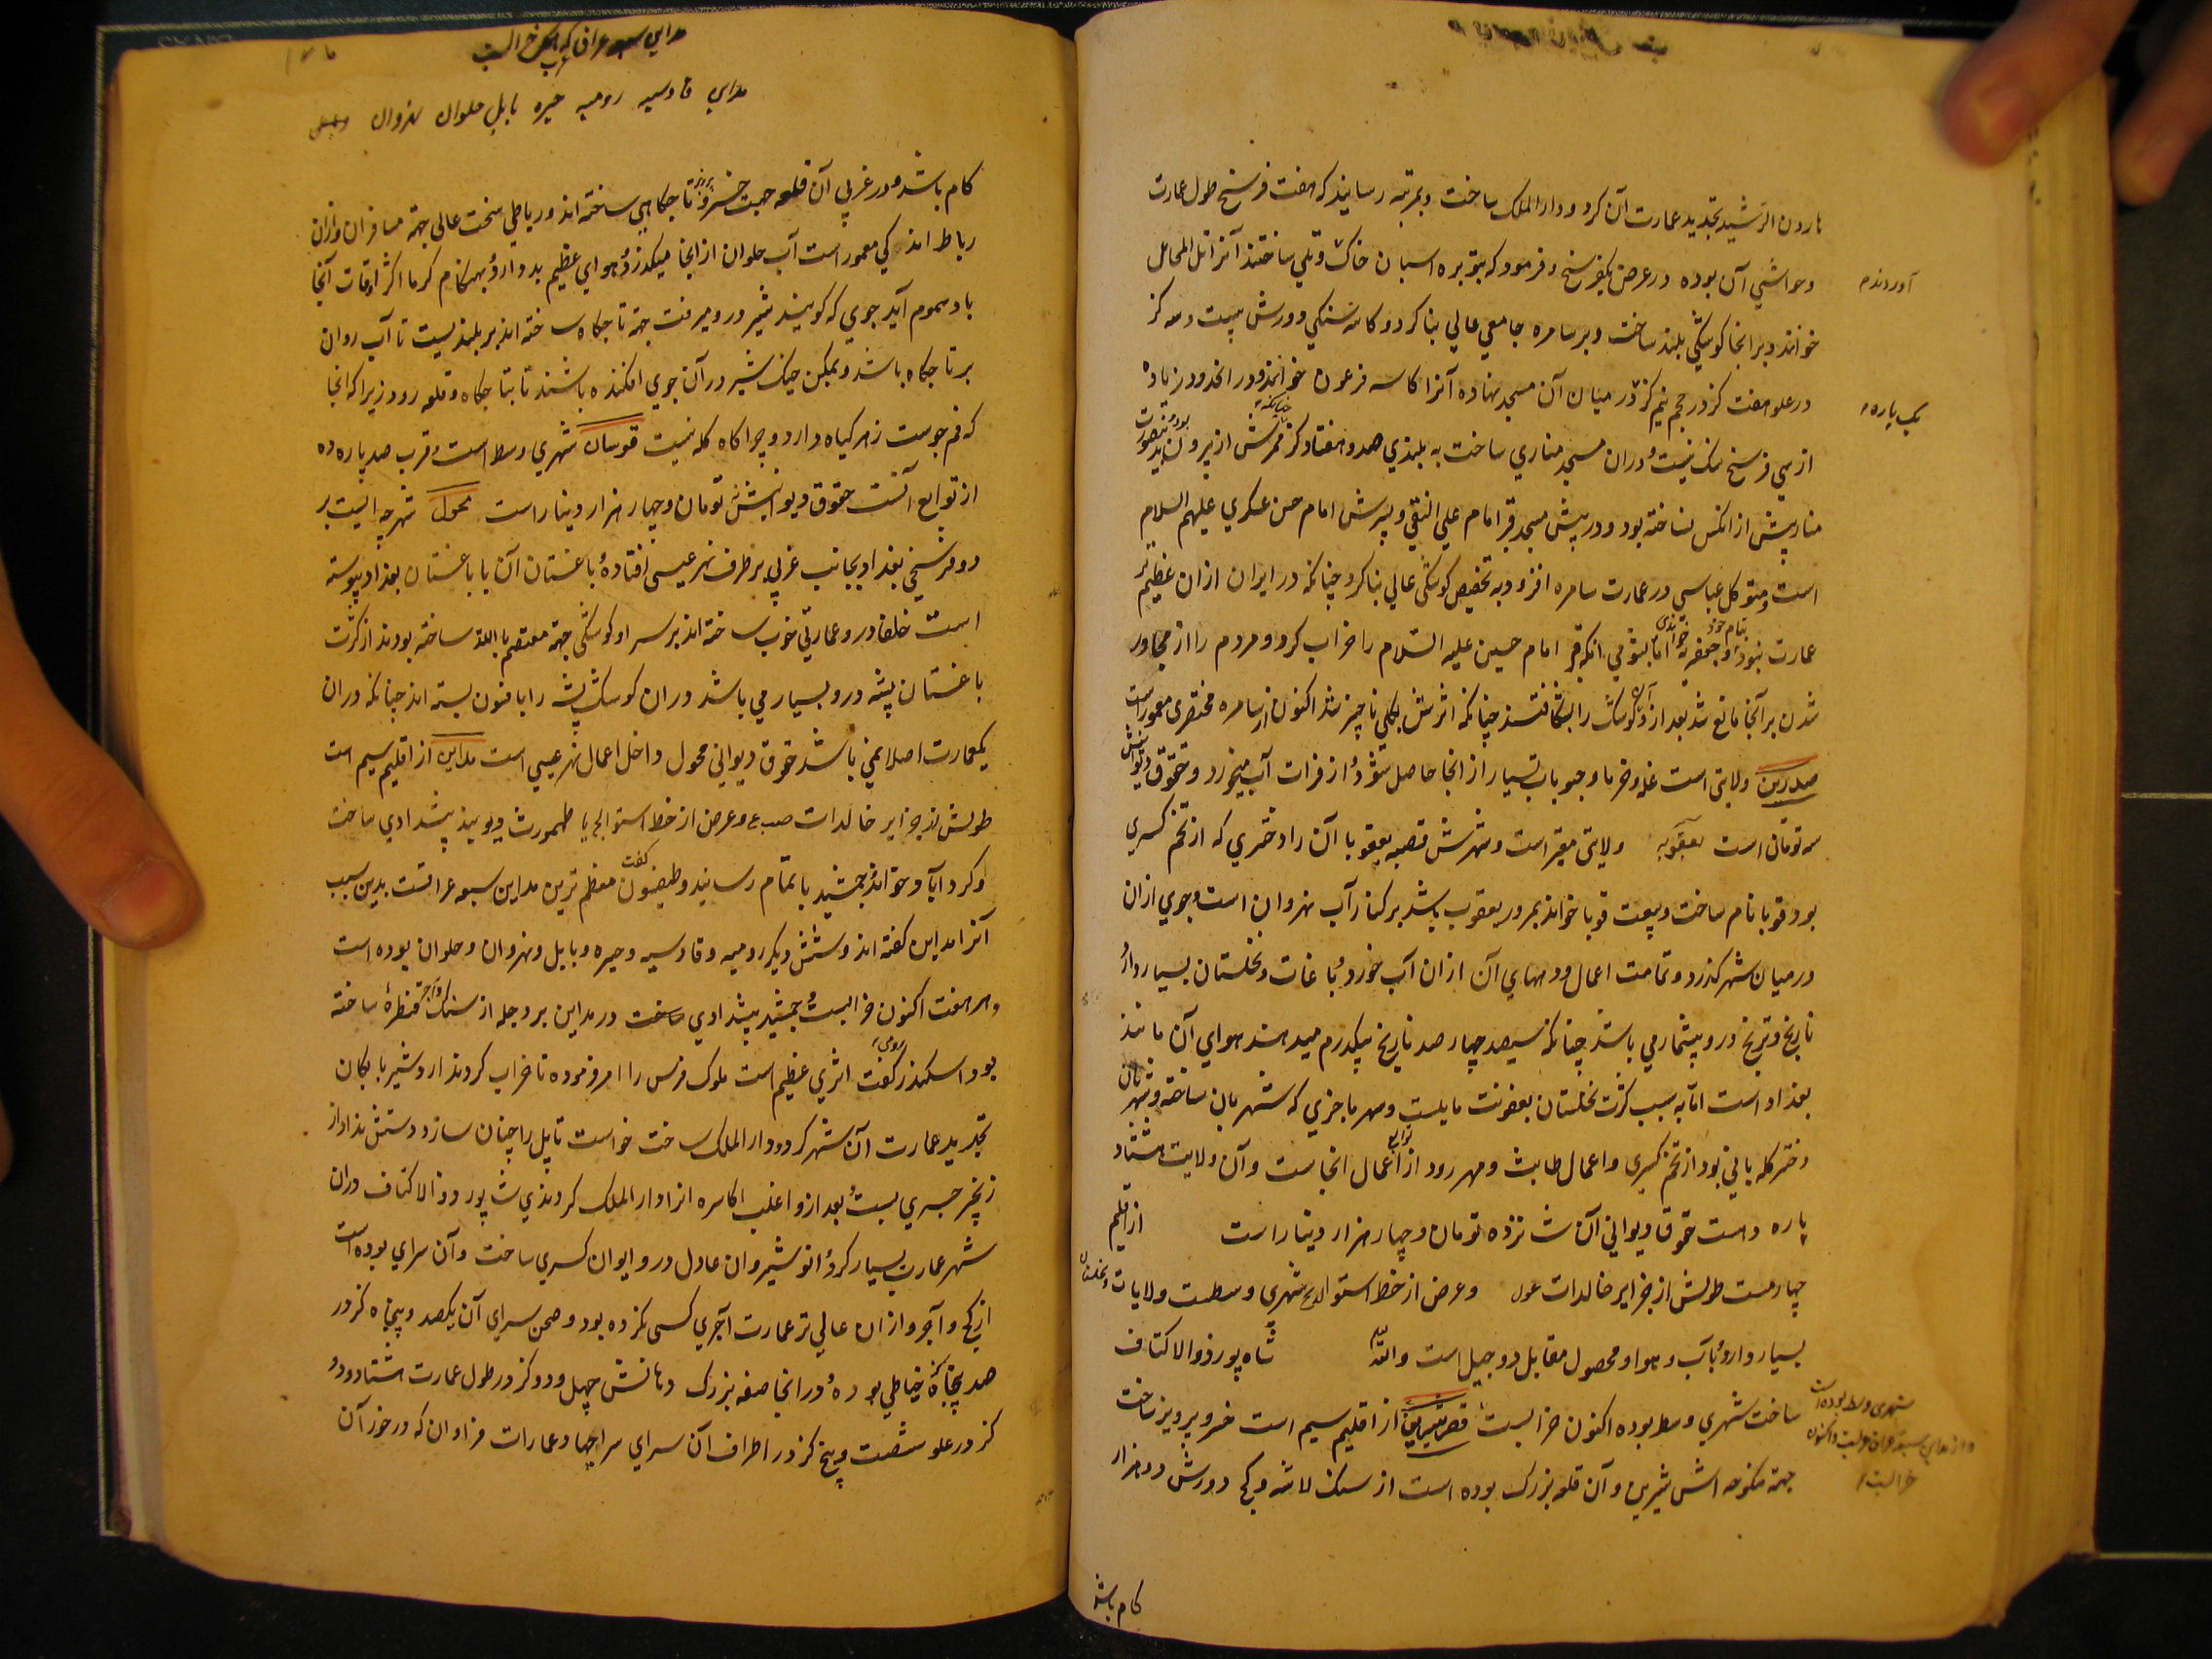 هارون الرشید تجدید عمارت آن کرد و دارالملک ساخت و بمرتبه رسانید که هفت فرسخ طول عمارت
وحواشی آن بوده در عرض یکفرسخ و فرمود که بتوبره اسبان خاک وتلی ساختند آنرا تل المخالی
آوردند
خواند و بر انجا کوشکی بلند ساخت و بر سامره جامعی عالی بنا کرد و کاسه سنکی دورش بیست وسه کز
در علو هفت کز در حجم نیم کز در میان آن مسجد نهاده آنرا کاسه فرعون خوانند و در انحدود زیاده
یک پاره
از سی فرسخ سنک نیست و دران مسجد مناری ساخت به بلندی صد و هفتاد کز ممرش از بیرون چنانکه بدینصورت بود
منار پیش از انکس نساخته بود و در پیش مسجد قبر امام علی النقی و پسرش امام حسن عسکری علیهم السلام
است و متوکل عباسی در عمارت سامره افزود به تخصیص کوشکی عالی بنا کرد چنانکه در ایران ازان عظیمتر
عمارت نبود و بنام خود جعفریه خواندی اما بشومی انکه قبر امام حسین علیه السلام را خراب کرد و مردم را از مجاور
شدن بر آنجا مانع شد بعد ازو آن کوشک را بشکافتند چنانکه اثرش بکلی ناچیز شد اکنون از سامره مختصری معمور است
صدرین ولایتی است غله و خرما و حبوبات بسیار از انجا حاصل شود و از فرات آب میخورد و حقوق دیوانیش
سه تومانی است بعقوبه ولایتی معتبر است و شهرش قصبه بعقوبا آن را دختری که از تخم کسری
بود قوبا نام ساخت و بیعت قوبا خواند بمرور بعقوب باشد بر کنار آب نهروان است و جوی ازان
در میان شهر کذرد و تمامت اعمال ودیهای آن ازان آب خورد و باغات و نخلستان بسیار دارد
نارنج و ترنج درو بیشمار می باشد چنانکه سیصد چهار صد نارنج بیکدرم میدهند هوای آن مانند
بغداد است اما به سبب کثرت نخلستان بعفونت مایلست ومهر ماجزی که شهربان ساخته و شهربان
دختر کله بانی بود از تخم کسری و اعمال طابث ومهر رود از توابع اعمال انجاست و آن ولایت هشتاد
پاره دهست حقوق دیوانی آن شانزده تومان و چهار هزار دینار است از اقلیم
چهارمست طولش از جزایر خالدات عول وعرض از خط استوا شهری وسطست ولایات و نخلستان
بسیار دارد و بآب و هوا و محصول مقابل دوجیل است والله شاه پور ذوالاکتاف
ساخت شهری وسط بوده اکنون خرابست قصر شیرین از اقلیم سیم است خسرو پرویز ساخت
شهری وسط بوده است
و از مداین سبعه عراق عربست و اکنون
خرابست
جهة منکوحه اش شیرین و آن قلعه بزرک بوده است از سنک لاشه و کچ دورش دو هزار
کام باشد
مداین سبعه عراق عرب که اکنون خرابست
مداین قادسیه رومیه حیره بابل حلوان نهروان
کام باشد و در غربی آن قلعه جهت خسرو پرویز تاجکاهی ساخته اند و رباطی سخت عالی جهة مسافران وازان
رباط اندکی معمور است آب حلوان از انجا میکذرد و هوای عظیم بد دارد و بهنکام کرما اکثر اوقات آنجا
باد سموم آید جوی که کویند شیر درو میرفت جهة تاجکاه ساخته اند بر بلندیست تا آب روان
بر تاجکاه باشد و بمکن خیک شیر در آن جوی افکنده باشند تا بتاجکاه و قلعه رود زیرا که انجا
که فم جوست زهر کیاه دارد و چراکاه کله نیست قوسان شهری وسط است و قرب صد پاره ده
از توابع آنست حقوق دیوانیش نه تومان و چهار هزار دینار است محول شهرچه ایست بر
دو فرسخی بغداد بجانب غربی بر طرف نهر عیسی افتاده و باغستان آن با باغستان بغداد پیوسته
است خلفا درو عمارتی خوب ساخته اند بر سر او کوشکی جهة معتصم باالله ساخته بودند از کثرت
باغستان پشه درو بسیار می باشد دران کوشک پشه را بافسون بسته اند چنانکه دران
یکعمارت اصلا نمی باشد حقوق دیوانی محول داخل اعمال نهر عیسی است مداین از اقلیم سیم است
طولش از جزایر خالدات صب ع و عرض از خط استوا طهمورث دیو بند پیشدادی ساخت
وکرد آباد خواند و جمشید باتمام رسانید وطیسفون کفت معظم ترین مداین سبعه عراقست بدین سبب
آنرا مداین کفته اند و شش دیکر رومیه و قادسیه و حیره و بابل و نهروان و حلوان بوده است
وهر هفت اکنون خرابست و جمشید پیشدادی ساخت در مداین بر دجله از سنک و آجر قنطرۀ ساخته
بود اسکندر رومی کفت اثری عظیم است ملوک فرس را امر فرموده تا خراب کردند اردشیر بابکان
تجدید عمارت آن شهر کرد و دارالملک ساخت خواست تا پل را چنان سازد دستش نداد از
زنجیر جسری بست و بعد ازو اغلب اکاسره انرا دارالملک کردندی شاپور ذوالاکتاف دران
شهر عمارت بسیار کرد و انوشیروان عادل درو ایوان کسری ساخت و آن سرای بوده است
از کچ و آجر و ازان عالی تر عمارت آجری کسی نکرده بود و صحن سرای آن یکصد و پنجاه کز در
صد پنجاه کز خیاطی بوده و در انجا صفه بزرک دهانش چهل و دو کز در طول عمارت هشتاد و دو
کز در علو شصت و پنج کز در اطراف آن سرای سراچها و عمارات فراوان که در خور آن